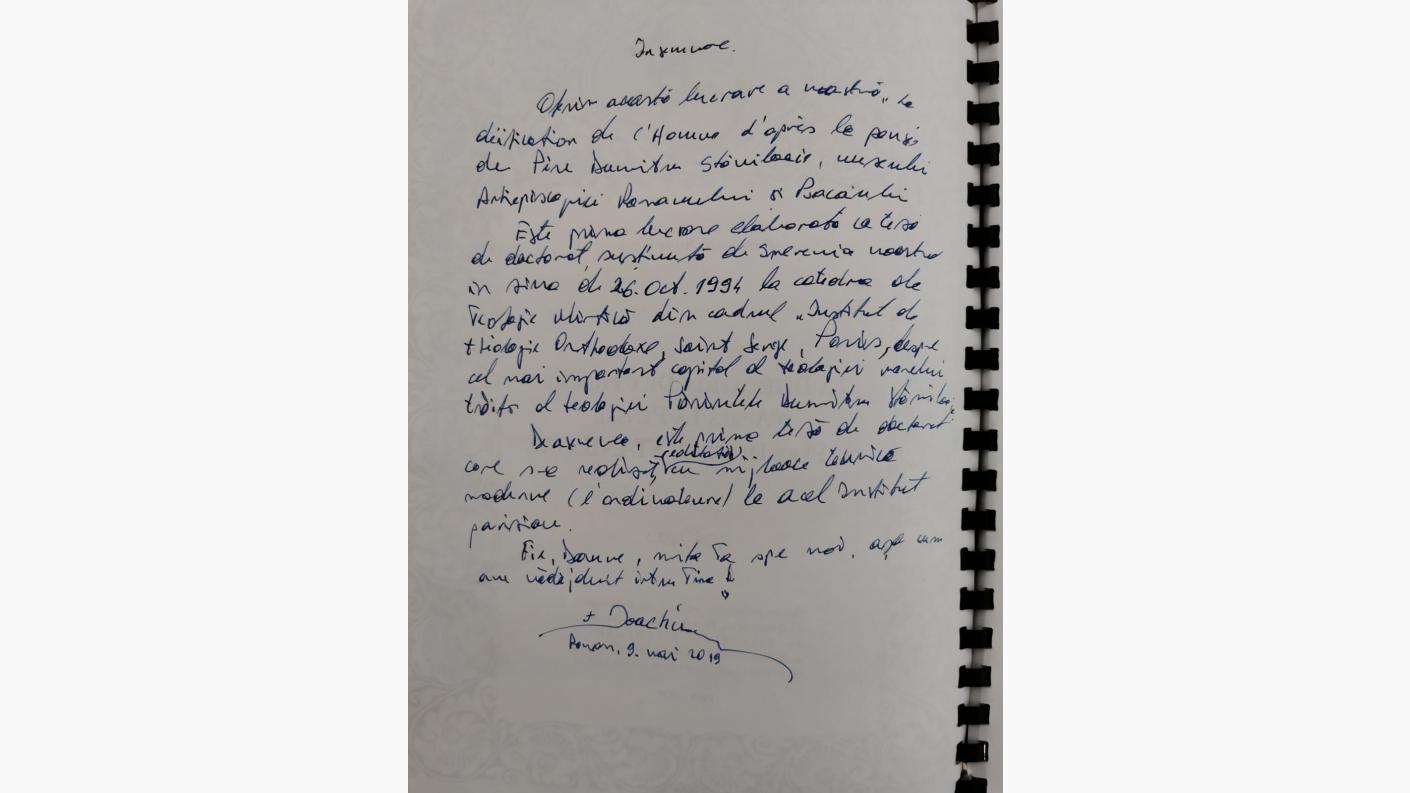 Însemnare.
Oferim această lucrare a noastră „La
déification de l'Homme d'après la pensée
de Père Dumitru Stăniloaie, muzeului
Arhiepiscopiei Romanului și Bacăului
Este prima lucrare elaborată ca teză
de doctorat, susținută de smerenia noastră
în ziua de 26. Oct. 1994 la catedra de
Teologie Mistică din cadrul „Institut de
théologie Orthodoxe, Saint Serge, Paris, despre
cel mai important capitol al teologiei marelui
trăitor al teologiei Părintele Dumitru Stăniloaie
De asemenea, este prima teză de doctorat
care s-a realizat, redactată cu mijloace tehnice
moderne (l'ordinateure) la acel Institut
parizian.
Fie, Doamne, mila Ta spre noi, așa cum
am nădăjduit întru Tine!
+ Ioachim
Roman, 9. mai 2019